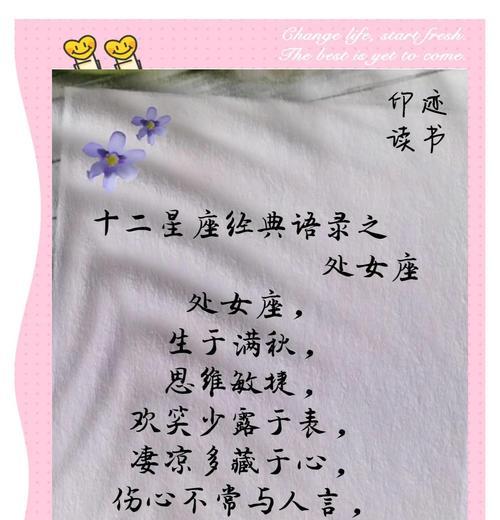 Change life, start fresh.
The best is yet to come.
印迹
读书
十二星座经典语录之
处女座
处女座，
生于满秋，
思维敏捷，
欢笑少露于表，
凄凉多藏于心，
伤心不常与人言，